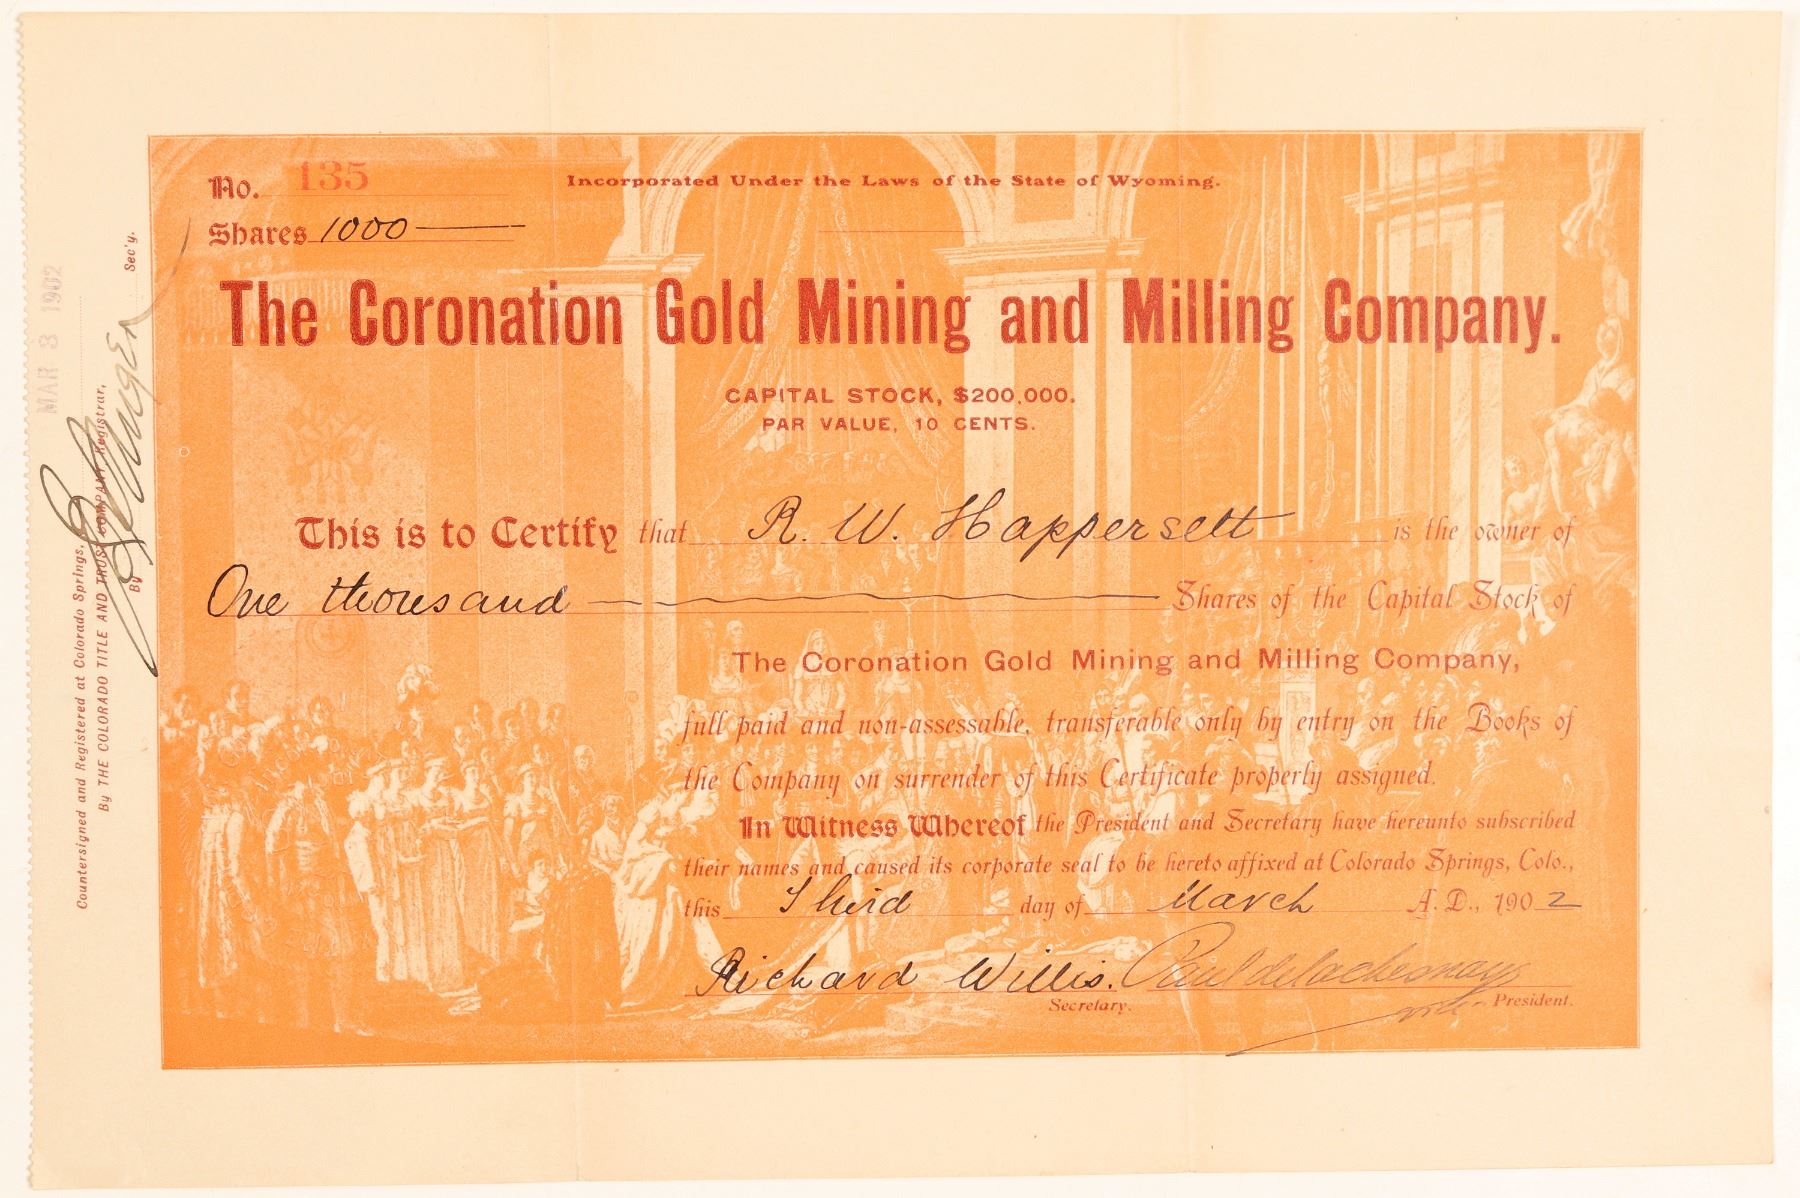 No. 135
Incorporated Under the Laws of the State of Wyoming.
Shares 1000
The Coronation Gold Mining and Milling Company.
CAPITAL STOCK, $200,000.
PAR VALUE, 10 CENTS.
This is to Certify that R. W. Happersett is the owner of
One thousand Shares of the Capital Stock of
The Coronation Gold Mining and Milling Company,
full paid and non-assessable, transferable only by entry on the Books of
the Company on surrender of this Certificate properly assigned.
In Witness Whereof the President and Secretary have hereunto subscribed
their names and caused its corporate seal to be hereto affixed at Colorado Springs, Colo.,
this Third day of March A. D., 1902
Richard Willis.
Secretary.
President.
MAR 3 1902
Countersigned and Registered at Colorado Springs,
By THE COLORADO TITLE AND TRUST COMPANY, Registrar,
By Sec'y.